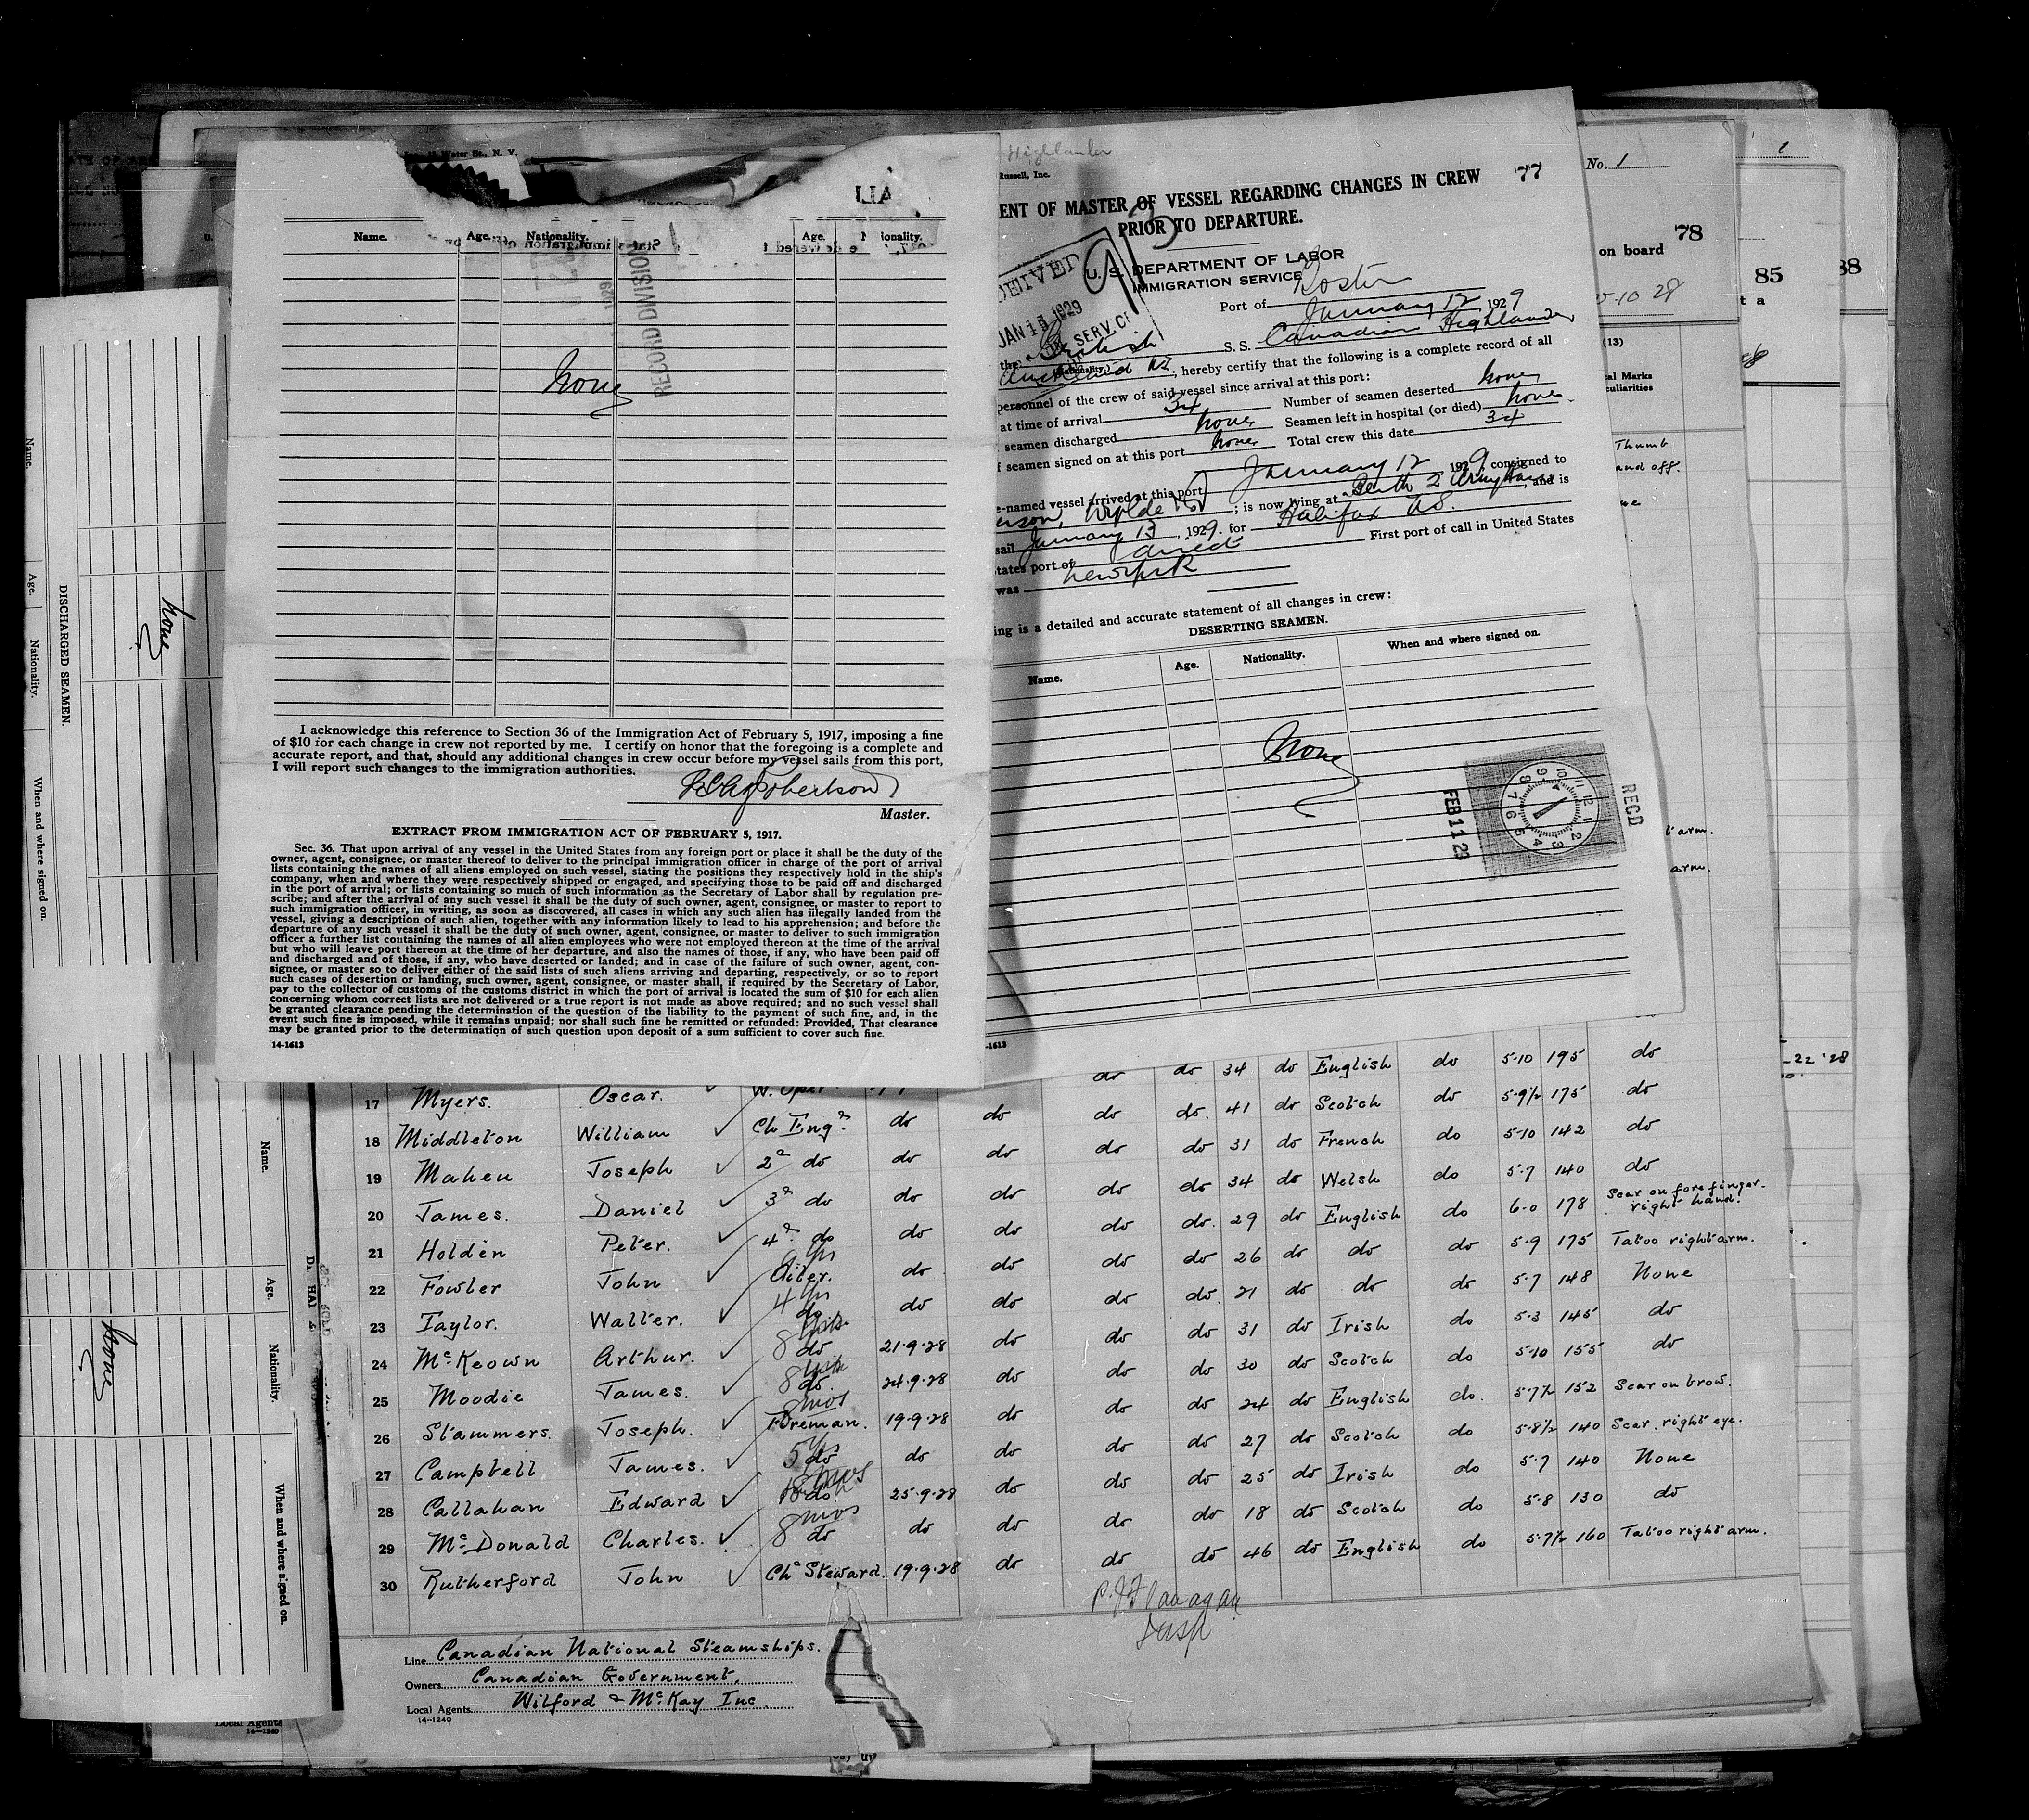 Water St., N. Y.
Name. Age. Nationality. Age.
RECORD DIVISION
None
I acknowledge this reference to Section 36 of the Immigration Act of February 5, 1917, imposing a fine
of $10 for each change in crew not reported by me. I certify on honor that the foregoing is a complete and
accurate report, and that, should any additional changes in crew occur before my vessel sails from this port,
I will report such changes to the immigration authorities.
Robertson
Master.
EXTRACT FROM IMMIGRATION ACT OF FEBRUARY 5, 1917.
Sec. 36. That upon arrival of any vessel in the United States from any foreign port or place it shall be the duty of the
owner, agent, consignee, or master thereof to deliver to the principal immigration officer in charge of the port of arrival
lists containing the names of all aliens employed on such vessel, stating the positions they respectively hold in the ship's
company, when and where they were respectively shipped or engaged, and specifying those to be paid off and discharged
in the port of arrival; or lists containing so much of such information as the Secretary of Labor shall by regulation pre-
scribe; and after the arrival of any such vessel it shall be the duty of such owner, agent, consignee, or master to report to
such immigration officer, in writing, as soon as discovered, all cases in which any such alien has illegally landed from the
vessel, giving a description of such alien, together with any information likely to lead to his apprehension; and before the
departure of any such vessel it shall be the duty of such owner, agent, consignee, or master to deliver to such immigration
officer a further list containing the names of all alien employees who were not employed thereon at the time of the arrival
but who will leave port thereon at the time of her departure, and also the names of those, if any, who have been paid off
and discharged and of those, if any, who have deserted or landed; and in case of the failure of such owner, agent, con-
signee, or master so to deliver either of the said lists of such aliens arriving and departing, respectively, or so to report
such cases of desertion or landing, such owner, agent, consignee, or master shall, if required by the Secretary of Labor,
pay to the collector of customs of the customs district in which the port of arrival is located the sum of $10 for each alien
concerning whom correct lists are not delivered or a true report is not made as above required; and no such vessel shall
be granted clearance pending the determination of the question of the liability to the payment of such fine, and, in the
event such fine is imposed, while it remains unpaid; nor shall such fine be remitted or refunded: Provided, That clearance
may be granted prior to the determination of such question upon deposit of a sum sufficient to cover such fine.
14-1613
Highlander
Russell, Inc.
77
ENT OF MASTER OF VESSEL REGARDING CHANGES IN CREW
PRIOR TO DEPARTURE.
U. S. DEPARTMENT OF LABOR
IMMIGRATION SERVICE
JAN 15 1929
Port of Boston
January 12 1929
the British S. S. Canadian Highlander
Auckland NZ, hereby certify that the following is a complete record of all
personnel of the crew of said vessel since arrival at this port:
at time of arrival 34 Number of seamen deserted None
seamen discharged None Seamen left in hospital (or died) None
f seamen signed on at this port None Total crew this date 34
e-named vessel arrived at this port January 12, 1929, consigned to
; is now lying at , and is
sail January 13, 1929. for Halifax NS.
tates port of direct First port of call in United States
was New York
ing is a detailed and accurate statement of all changes in crew:
DESERTING SEAMEN.
Name. Age. Nationality. When and where signed on.
None
RECD
FEB 11 29
-1613
No. 1
78
on board
5-10 28
(13)
al Marks
culiarities
Thumb
and off.
arm.
arm.
85
t a
88
-22 '28
Name. Age. Nationality. When and where signed on.
DISCHARGED SEAMEN.
None
Name. Age. Nationality. When and where signed on.
None
do do 34 do English do 5-10 195 do
17 Myers. Oscar. W. Oper do do do do. 41 do Scotch do 5-9½ 175 do
18 Middleton William Ch Engr. do do do do 31 do French do 5-10 142 do
19 Maheu Joseph 2nd do do do do do 34 do Welsh do 5-7 140 do
20 James. Daniel 3rd do do do do do. 29 do English do 6-0 178 Scar on forefinger right hand.
21 Holden Peter. 4th do do do do do 26 do do do 5-9 175 Tatoo right arm.
22 Fowler John Oiler. do do do do. 21 do do do 5-7 148 None
23 Taylor. Walter. 4 yrs do do do do do 31 do Irish do 5-3 145 do
24 McKeown Arthur. 8 do 21-9-28 do do do 30 do Scotch do 5-10 155 do
25 Moodie James. 8 do. 24-9-28 do do do 24 do English do. 5-7½ 152 Scar on brow.
26 Stammers Joseph. Fireman. 19-9-28 do do do 27 do Scotch do 5-8½ 140 Scar right eye.
27 Campbell James. 5 yrs do do do do do 25 do Irish do 5-7 140 None
28 Callahan Edward 18 mos do. 25-9-28 do do do 18 do Scotch do 5-8 130 do
29 McDonald Charles. 8 mos do do do do do 46 do English do 5-7½ 160 Tatoo right arm.
30 Rutherford John Ch Steward. 19-9-28 do
P. J. Flanagan
Insp
Line Canadian National Steamships.
Owners Canadian Government.
Local Agents Wilford & McKay Inc.
14-1240
Local Agents
14-1240